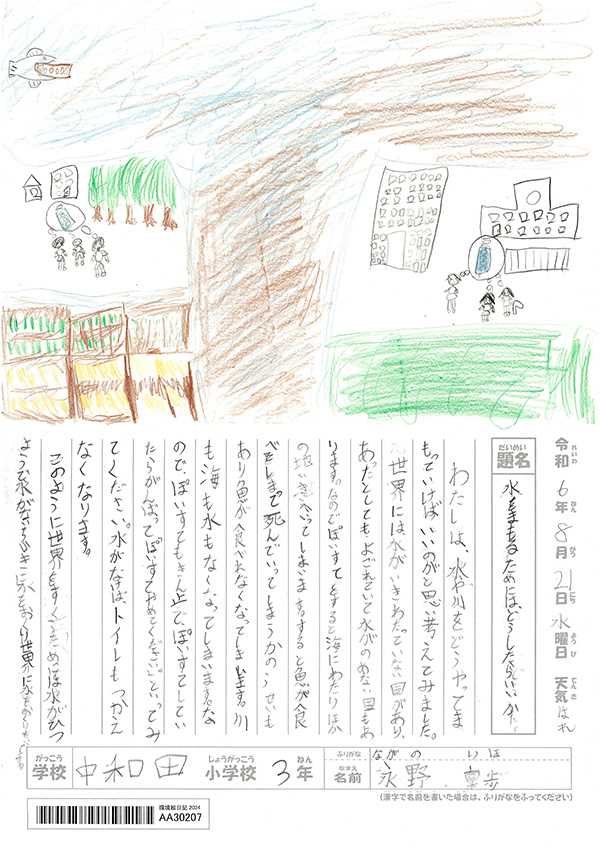 令和6年8月21日水曜日 天気はれ
題名 水をまもるためには、どうしたらいいか
わたしは、水や川をどうやってま
もっていけばいいのがと思い考えてみました。
世界には、水がいきわたっていない国があり、
あったとしても、よごれていて水がのめない国もあ
ります。なのでぽいすてとをすると海にわたりほか
の地いきへいってしまいます。すると魚が食
べてしまて死んでいってしまうかのうせいも
あり魚が食べれなくなってしまいます。川
も海も水もなくなってしまいます。な
ので、ぽいすてもきん止でぽいすてしてい
たらがんばってぽいすてやめてください。といってみ
てください。水がなければ、トイレもつかえ
なくなります。
このように世界をすくうためには水がひつ
ようで水が
学校 中和田 小学校 3年
名前 永野
ながの いほ
(漢字で名前を書いた場合は、ふりがなをふってください)
環境絵日記 2024
AA30207